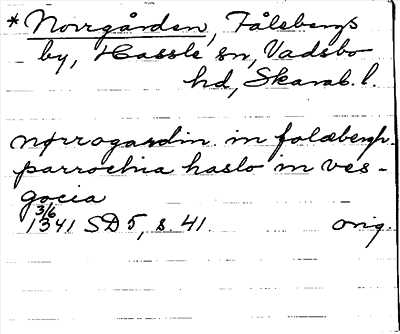 * Norrgården, Fålebergs
by, Hassle sn, Vadsbo
hd, Skarab. l.
norrogardin in folæbergh
parrochia haslo in ves-
gocia
3/6
1341 SD 5, s. 41. orig.